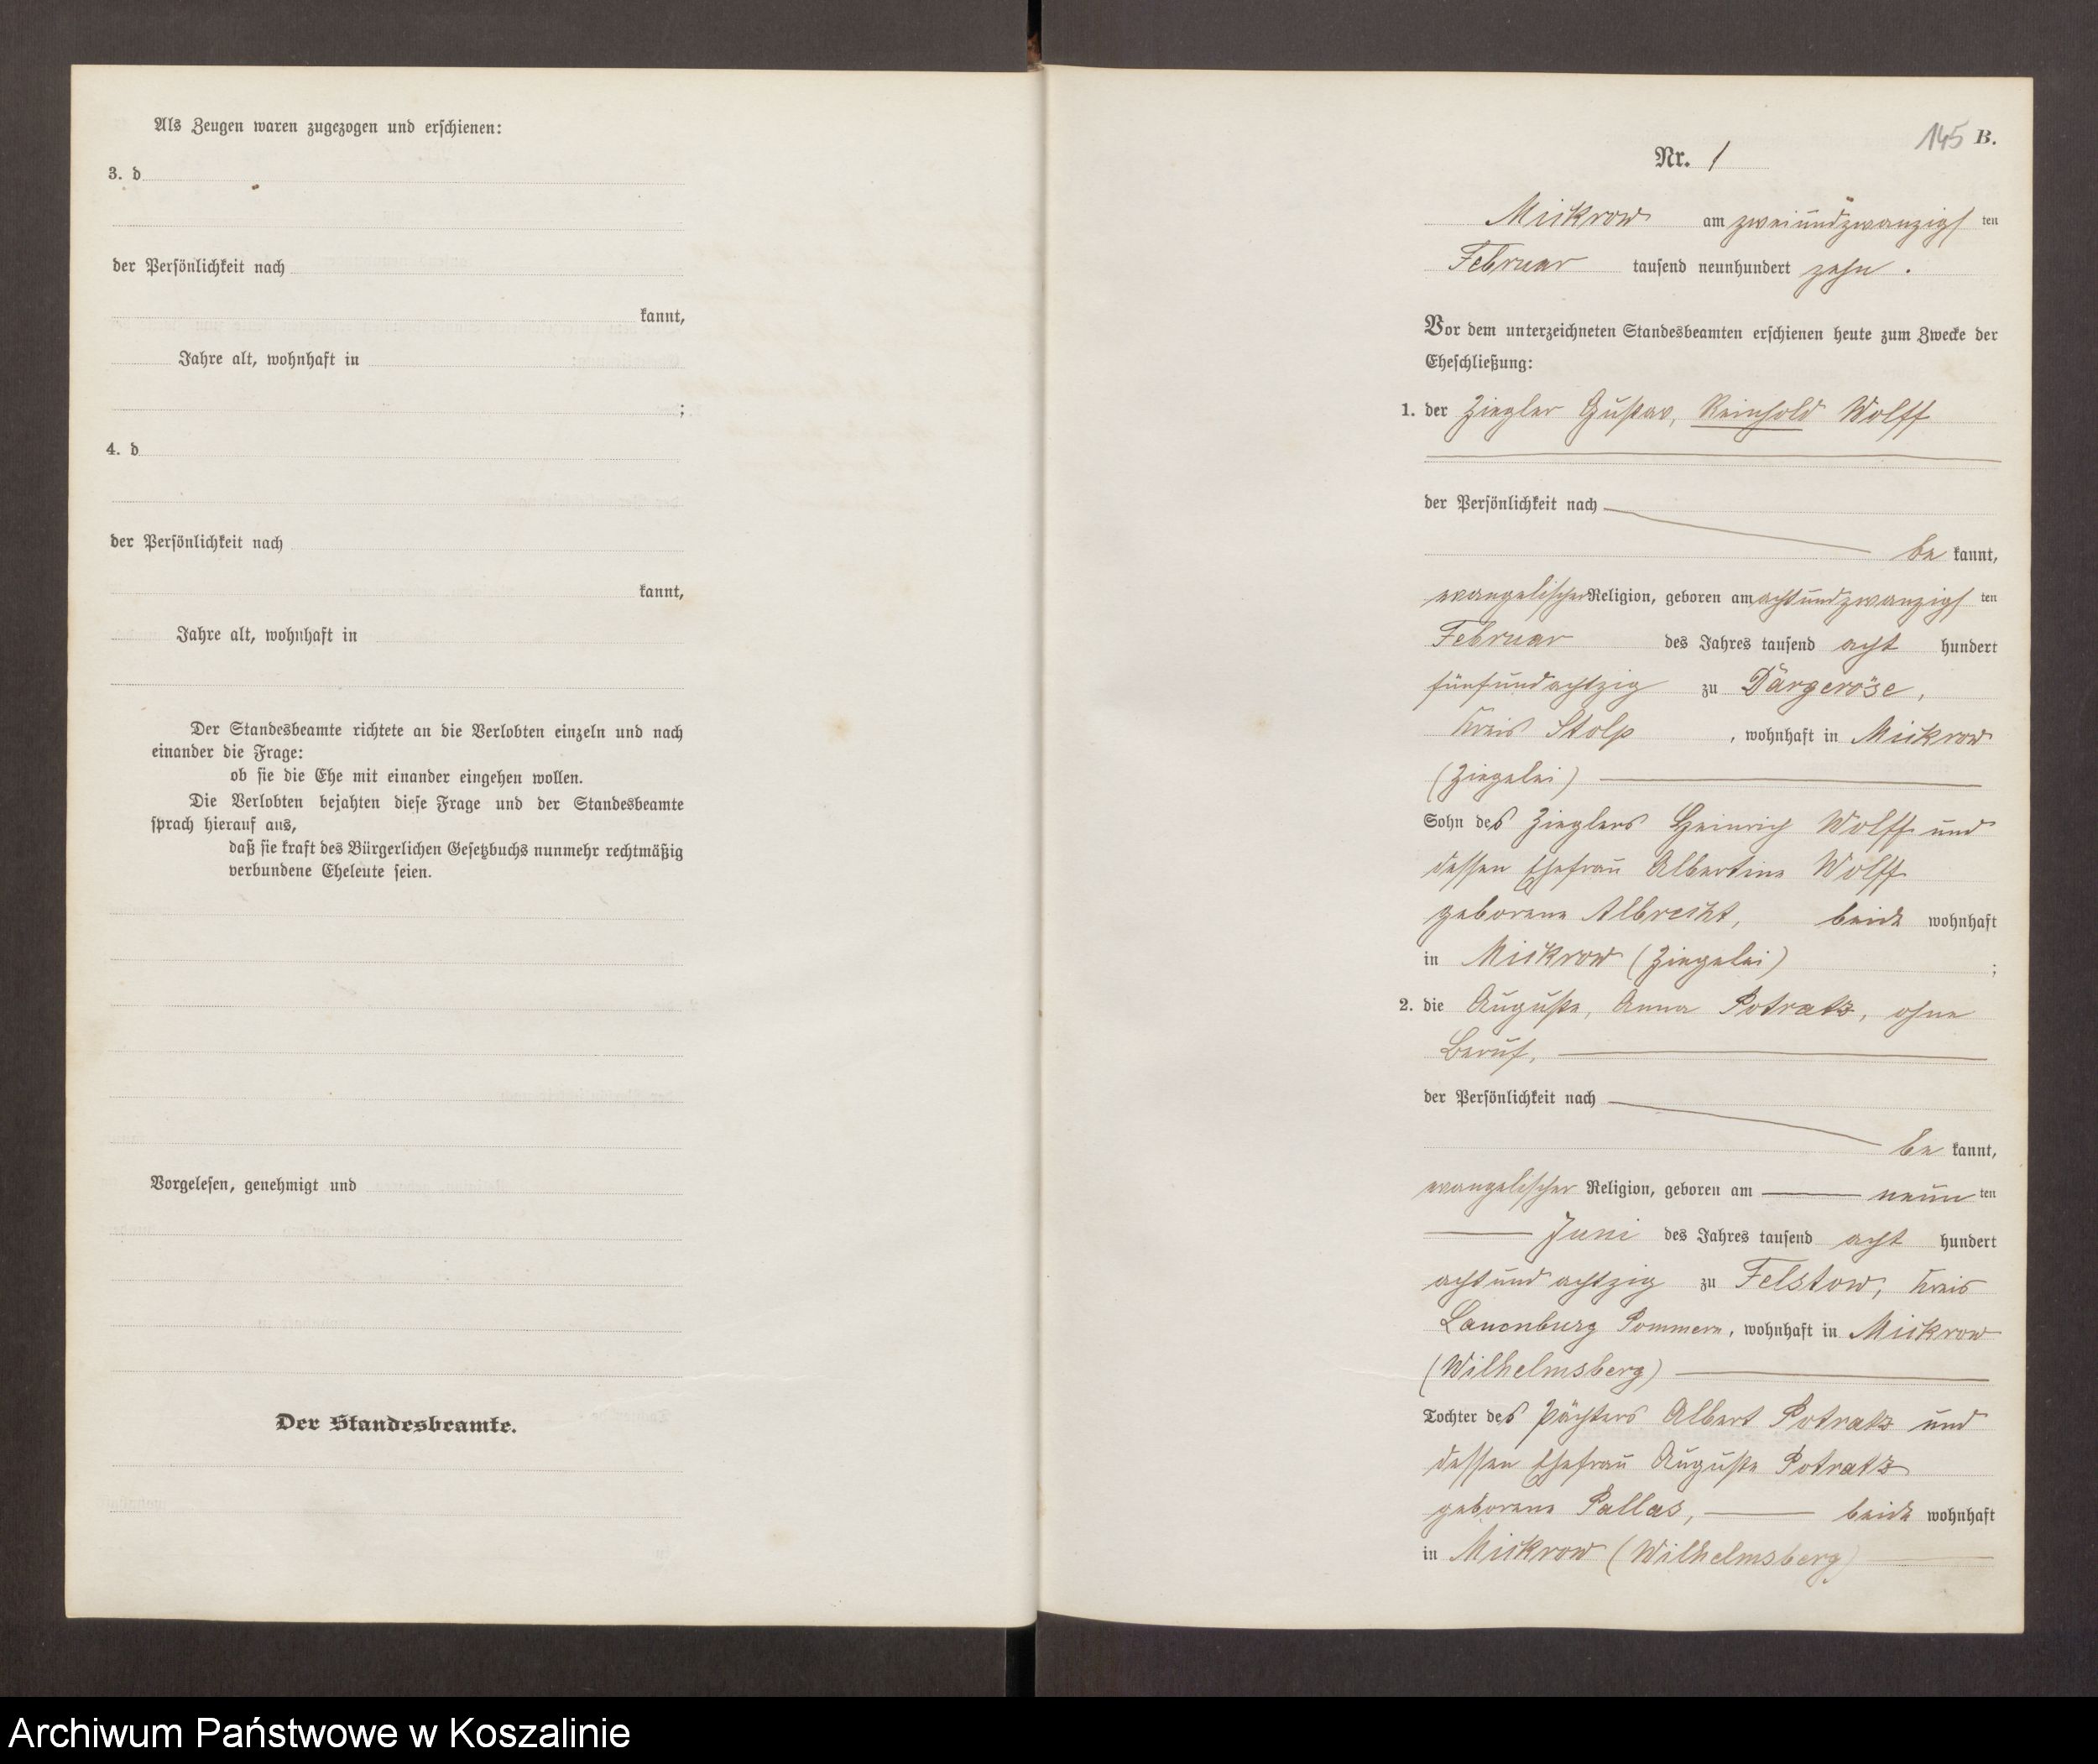 Als Zeugen waren zugezogen und erschienen:
3. d
der Persönlichkeit nach
kannt,
Jahre alt, wohnhaft in
;
4. d
der Persönlichkeit nach
kannt,
Jahre alt, wohnhaft in
Der Standesbeamte richtete an die Verlobten einzeln und nach
einander die Frage:
ob sie die Ehe mit einander eingehen wollen.
Die Verlobten bejahten diese Frage und der Standesbeamte
sprach hierauf aus,
daß sie kraft des Bürgerlichen Gesetzbuchs nunmehr rechtmäßig
verbundene Eheleute seien.
Vorgelesen, genehmigt und
Der Standesbeamte.
145 B.
Nr. 1
Mickrow am zweiundzwanzigsten
Februar tausend neunhundert zehn.
Vor dem unterzeichneten Standesbeamten erschienen heute zum Zwecke der
Eheschließung:
1. der Ziegler Gustav, Reinhold Wolff
der Persönlichkeit nach
be kannt,
evangelischer Religion, geboren am achtundzwanzigsten
Februar des Jahres tausend acht hundert
fünfundachtzig zu Dargeröse,
Kreis Stolp, wohnhaft in Mickrow
(Ziegelei)
Sohn des Zieglers Heinrich Wolff und
dessen Ehefrau Albertine Wolff
geborene Albrecht, beide wohnhaft
in Mickrow (Ziegelei) ;
2. die Auguste, Anna Potratz, ohne
Beruf,
der Persönlichkeit nach
be kannt,
evangelischer Religion, geboren am neunten
Juni des Jahres tausend acht hundert
achtundachtzig zu Felstow, Kreis
Lauenburg Pommern, wohnhaft in Mickrow
(Wilhelmsberg)
Tochter des Pächters Albert Potratz und
dessen Ehefrau Auguste Potratz
geborene Pallas, beide wohnhaft
in Mickrow (Wilhelmsberg)
Archiwum Państwowe w Koszalinie